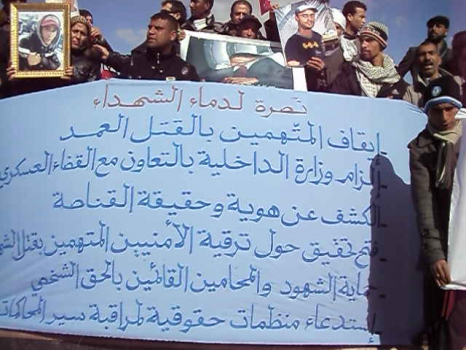 نصرة لدماء الشهداء
- إيقاف المتهمين بالقتل العمد
- إلزام وزارة الداخلية بالتعاون مع القضاء العسكري
- الكشف عن هوية وحقيقة القناصة
- فتح تحقيق حول ترقية الأمنيين المتهمين بقتل
- حماية الشهود والمحامين القائمين بالحق الشخصي
- إستدعاء منظمات حقوقية لمراقبة سير المحاكمات